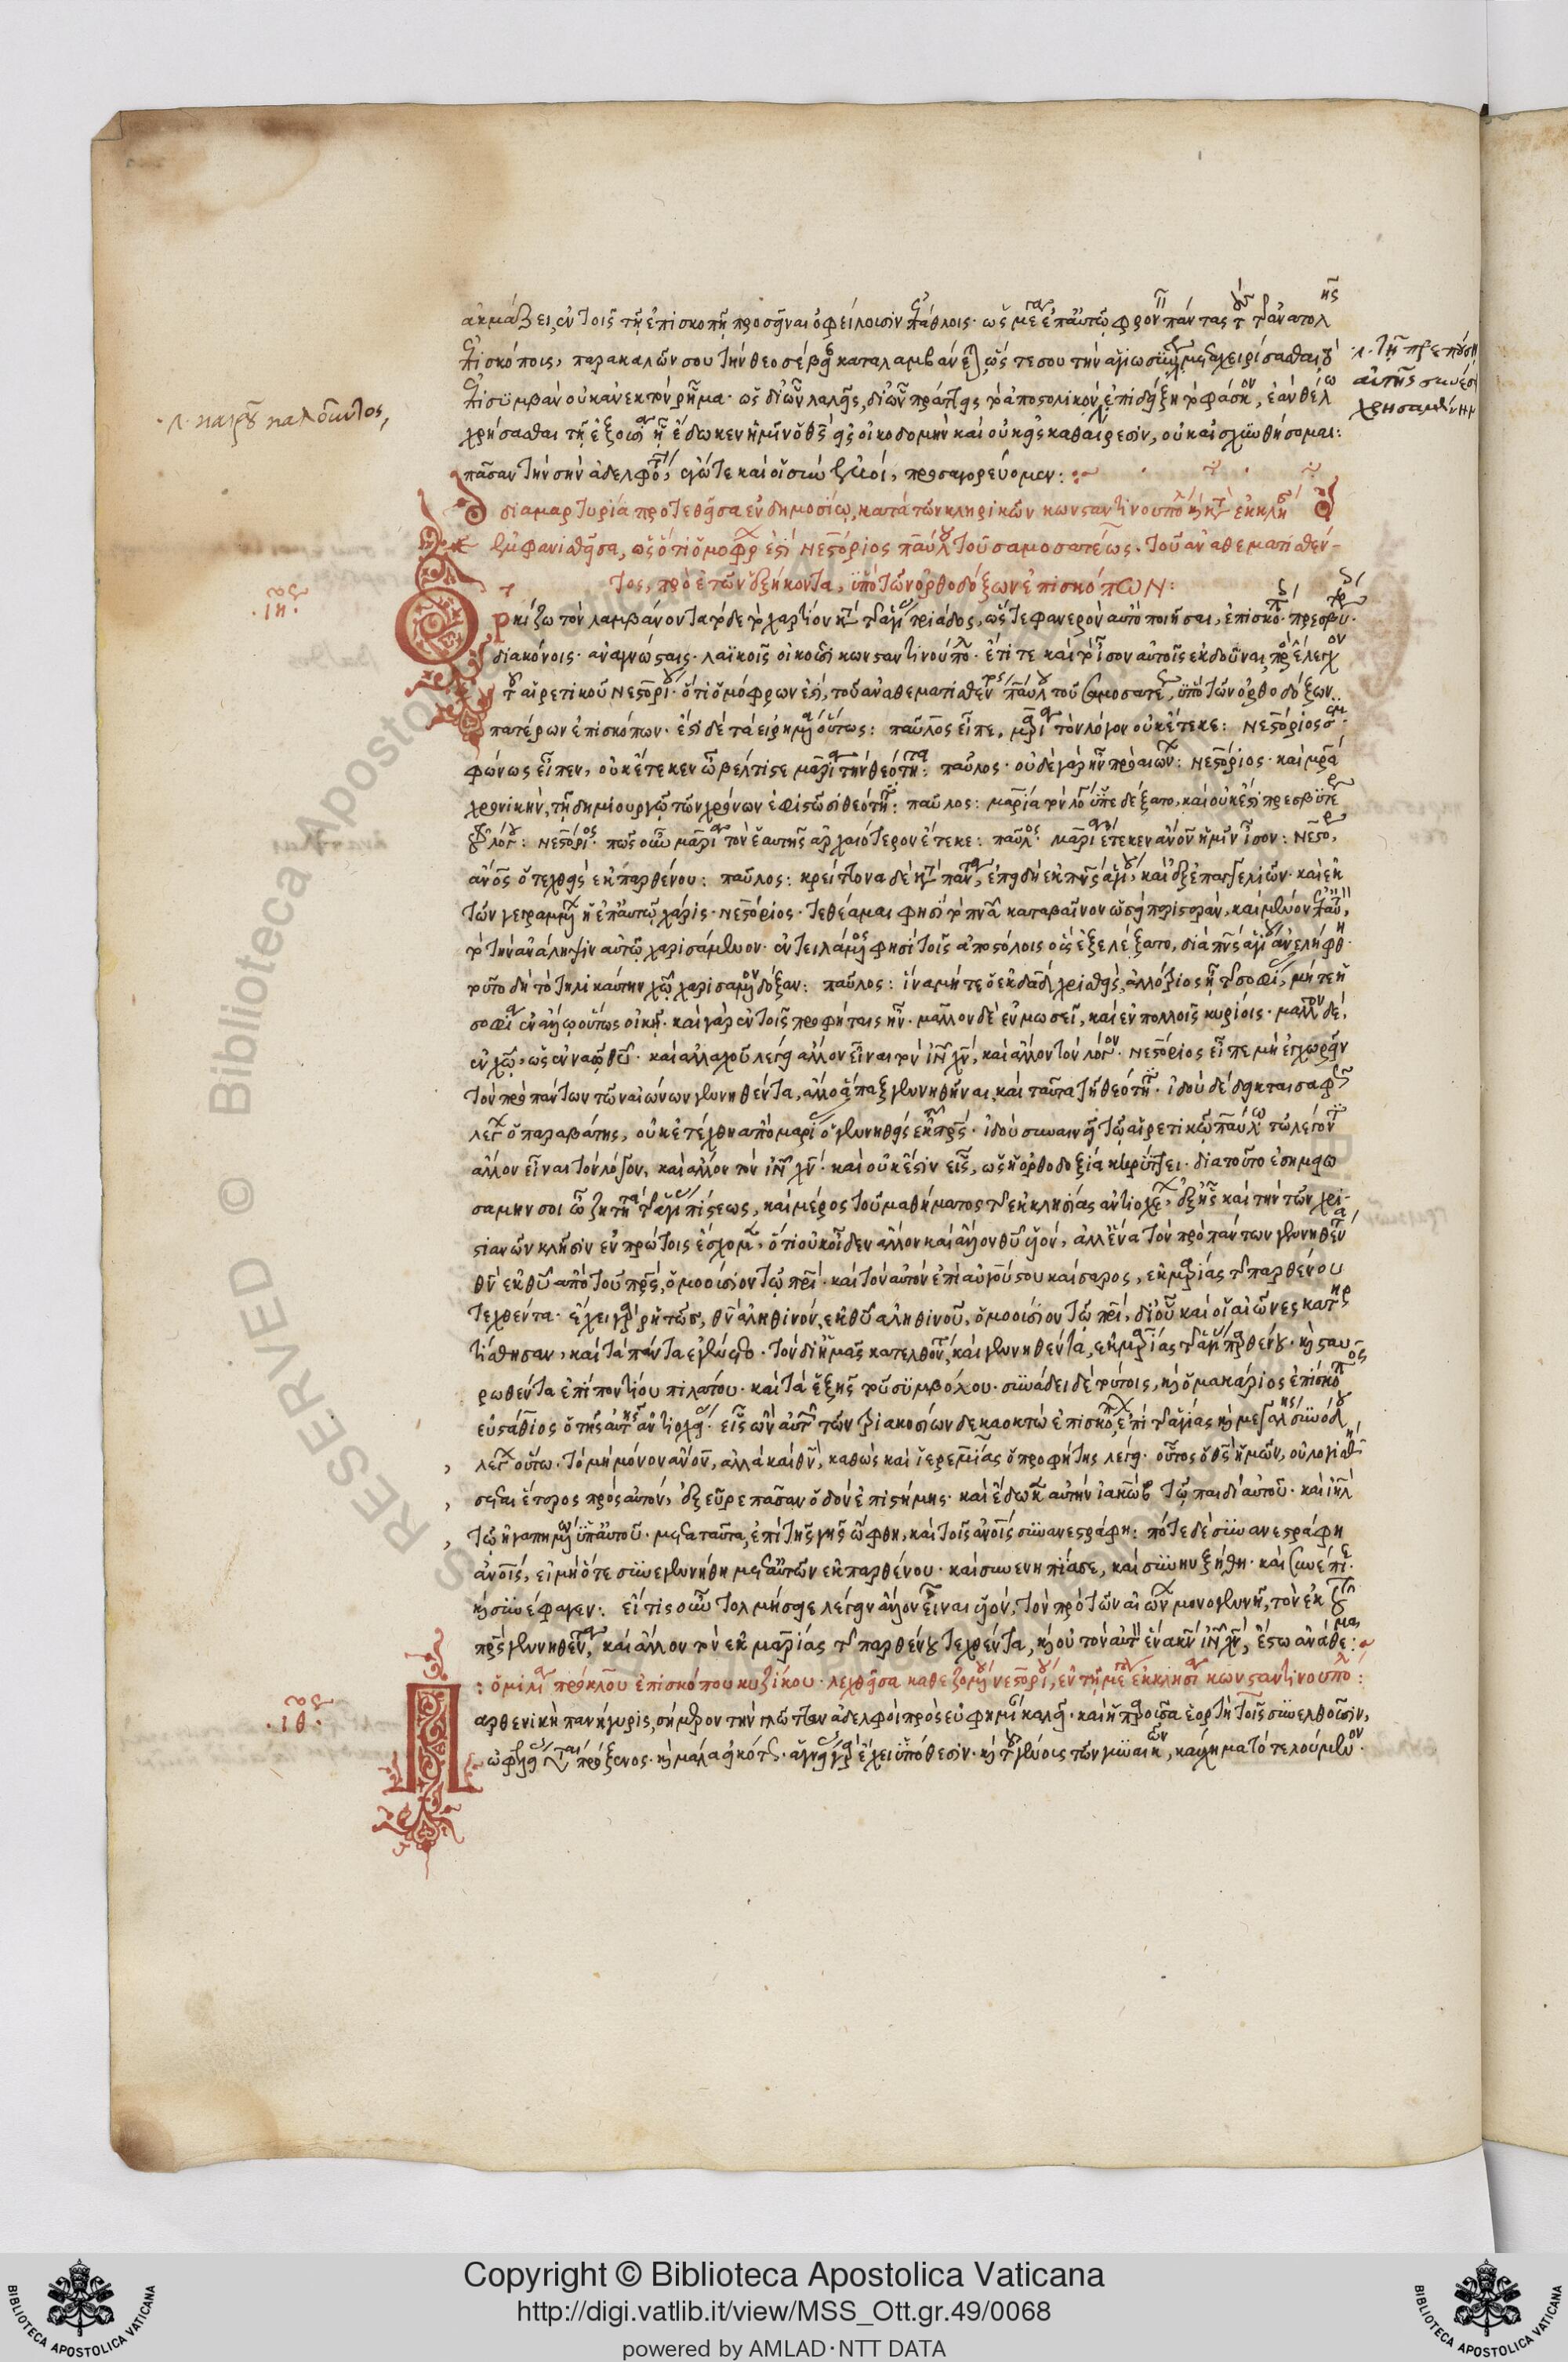 ἀκμάζει, ἐν τοῖς τῇ ἐπισκοπῇ προσεῖναι ὀφείλουσιν ἐπάθλοις· ὥς με ἐπ' αὐτῷ φρον πάντας τ τ ἀνατολ
ἐπισκόποις, παρακαλῶν σου τὴν θεοσέβ καταλαμβάνε ὥς τε σου τὴν ἁγιωσύ
ἐπισυμβὰν οὐκ ἀνεκτὸν ῥῆμα· ὡς δι' ὧν λαλεῖς, δι' ὧν πράττεις τὸ ἀποστολικὸν ἐπιδείξη τὸ φάσκ, ἐὰν θέλ
χρήσασθαι τῇ ἐξουσι ᾗ ἔδωκεν ἡμῖν ὁ θς εἰς οἰκοδομὴν καὶ οὐκ εἰς καθαίρεσιν, οὐκ αἰσχυνθήσομαι:
πᾶσαν τὴν σὴν ἀδελφότ, ἐγώ τε καὶ οἱ σὺν ἐμοί, προσαγορεύομεν:
διαμαρτυρία προτεθεῖσα ἐν δημοσίῳ, κατὰ τῶν κληρικῶν κωνσταντινουπό κ κτ ἐκκλη
ἐμφανισθεῖσα, ὡς ὅτι ὁμόφρ ἐστὶ Νεστόριος παύλ τοῦ σαμοσατέως. τοῦ ἀναθεματισθέν-
τος, πρὸ ἐτῶν ἑξήκοντα, ὑπὸ τῶν ὀρθοδόξων ἐπισκόπων:
·ιη·
Ορκίζω τὸν λαμβάνοντα τόδε τὸ χαρτίον κτ τ ἁγί τριάδος, ὥστε φανερὸν αὐτὸ ποιῆσαι, ἐπισκό· πρεσβυ·
διακόνοις· ἀναγνώσταις· λαϊκοῖς οἰκοῦσι κωνσταντινούπο· ἔτι τε καὶ τὸ ἶσον αὐτοῖς ἐκδοῦναι, πρὸς ἔλεγχον
τ αἱρετικοῦ Νεστορί· ὅτι ὁμόφρων ἐστὶ, τοῦ ἀναθεματισθέν παύλ τοῦ σαμοσατέ, ὑπὸ τῶν ὀρθοδόξων
πατέρων ἐπισκόπων· ἔστι δὲ τὰ εἰρημ οὕτως: παῦλος εἶπε, μαρία τὸν λόγον οὐκ ἔτεκε: Νεστόριος συμ
φώνως εἶπεν, οὐκ ἔτεκεν ὦ βέλτιστε μαρία τὴν θεότητα: παῦλος· οὐδὲ γὰρ ἦν πρὸ αἰών: Νεστόριος· καὶ μρα
χρονικὴν, τῇ δημιουργῷ τῶν χρόνων ἐφιστῶσι θεότητι: παῦλος: μαρία τὸν λό ὑπεδέξατο, καὶ οὐκ ἔστι πρεσβυτέρ
τ λόγ: Νεστόριος· πῶς οὖν μαρία τὸν ἑαυτῆς ἀρχαιότερον ἔτεκε: παῦλος· μαρία ἔτεκεν ἀνον ἡμῖν ἶσον: Νεστό,
ἀνος ὁ τεχθεὶς ἐκ παρθένου: παῦλος: κρείττονα δὲ κτ πάντα, ἐπειδὴ ἐκ πνς ἁγί, καὶ ἐξ ἐπαγγελιῶν· καὶ ἐκ
τῶν γεγραμμ ἡ ἐπ' αὐτῷ χάρις· Νεστόριος· τεθέαμαι φησὶ τὸ πνα καταβαῖνον ὡσεὶ περιστερὰν, καὶ μένον ἐπ' αὐ,
τὸ τὴν ἀνάληψιν αὐτῷ χαρισάμενον· ἐντειλάμενος φησὶ τοῖς ἀποστόλοις οὓς ἐξελέξατο, διὰ πνς ἁγί ἀνελήφθη·
τοῦτο δὴ τὸ τηλικαύτην χῷ χαρισάμενον δόξαν: παῦλος: ἵνα μήτε ὁ ἐκ δαδ χρισθεὶς, ἀλλότριος ᾖ τ σοφί, μήτε ἡ
σοφία ἐν ἄλλῳ οὕτως οἰκῇ· καὶ γὰρ ἐν τοῖς προφήταις ἦν· μᾶλλον δὲ ἐν μωσεῖ, καὶ ἐν πολλοῖς κυρίοις· μᾶλλον δὲ,
ἐν χῷ, ὡς ἐν ναῷ θυ· καὶ ἀλλαχοῦ λέγει ἄλλον εἶναι τὸν ιν χν, καὶ ἄλλον τὸν λόγον· Νεστόριος εἶπε μὴ ἐγχωρεῖν
τὸν πρὸ πάντων τῶν αἰώνων γεννηθέντα, ἄλλο ἅπαξ γεννηθῆναι, καὶ ταῦτα τῇ θεότητι· ἰδοὺ δέδεικται σαφ
λέγ ὁ παραβάτης, οὐκ ἐτέχθη ἀπὸ μαρί ὁ γεννηθεὶς ἐκ πρς· ἰδοὺ συναινεῖ τῷ αἱρετικῷ παύλῳ τῷ λέγοντι
ἄλλον εἶναι τὸν λόγον, καὶ ἄλλον τὸν ιν χν· καὶ οὐκ ἔστιν εἷς, ὡς ἡ ὀρθοδοξία κηρύττει· διὰ τοῦτο ἐσημειω
σάμην σοι ὦ ζηλωτὰ τ ἁγί πίστεως, καὶ μέρος τοῦ μαθήματος τ ἐκκλησίας ἀντιοχέ, ἐξ ἧς καὶ τὴν τῶν χρι-
στιανῶν κλῆσιν ἐν πρώτοις ἔσχομεν, ὅτι οὐκ οἶδεν ἄλλον καὶ ἄλλον θυ υἱόν, ἀλλ' ἕνα τὸν πρὸ πάντων γεννηθέντα
θν ἐκ θυ ἀπὸ τοῦ πρς, ὁμοούσιον τῷ πρι· καὶ τὸν αὐτὸν ἐπὶ αὐγούστου καίσαρος, ἐκ μαρίας τ παρθένου
τεχθέντα· ἔχει γὰρ ῥητῶς, θν ἀληθινόν, ἐκ θυ ἀληθινοῦ, ὁμοούσιον τῷ πρι, δι' οὗ καὶ οἱ αἰῶνες κατηρ
τίσθησαν, καὶ τὰ πάντα ἐγένετο· τὸν δι' ἡμᾶς κατελθόντ, καὶ γεννηθέντα, ἐκ μαρίας τ ἁγί παρθένου· κ σταυ
ρωθέντα ἐπὶ ποντίου πιλάτου· καὶ τὰ ἑξῆς τοῦ συμβόλου· συνάδει δὲ τούτοις, κ ὁ μακάριος ἐπίσκοπος
εὐστάθιος ὁ τῆς αὐτῆς ἀντιοχεί· εἷς ὢν αὐτ τῶν τριακοσίων δεκαοκτὼ ἐπισκό, ἐπὶ τ ἁγίας κ μεγάλης συνόδου
λέγ οὕτω· τὸ μὴ μόνον ἀνον, ἀλλὰ καὶ θν, καθὼς καὶ ἱερεμίας ὁ προφήτης λέγει· οὗτος ὁ θς ἡμῶν, οὐ λογισθή
σεται ἕτερος πρὸς αὐτόν, ἐξεῦρε πᾶσαν ὁδὸν ἐπιστήμης· καὶ ἔδωκ αὐτὴν ἰακὼβ τῷ παιδὶ αὐτοῦ· καὶ ιηλ
τῷ ἠγαπημένῳ ὑπ' αὐτοῦ· μετὰ ταῦτα, ἐπὶ τῆς γῆς ὤφθη, καὶ τοῖς ἀνοις συνανεστράφη: πότε δὲ συνανεστράφη
ἀνοις, εἰ μὴ ὅτε συνεγεννήθη μετ' αὐτῶν ἐκ παρθένου· καὶ συνενηπίασε, καὶ συνηυξήθη· καὶ συνέπιε·
κ συνέφαγεν: εἴ τις οὖν τολμήσειε λέγειν ἄλλον εἶναι υἱόν, τὸν πρὸ τῶν αἰών μονογενῆ, τὸν ἐκ τοῦ
πρς γεννηθέντα, καὶ ἄλλον τὸν ἐκ μαρίας τ παρθένου τεχθέντα, κ οὐ τὸν αὐτ ἕνα κν ιν χν, ἔστω ἀνάθεμα:
·ιθ·
: ὁμιλία πρόκλου ἐπισκόπου κυζίκου· λεχθεῖσα καθεζομ νεστορί, ἐν τῇ μεγάλ ἐκκλησία κωνσταντινουπό:
Παρθενικὴ πανήγυρις, σήμερον τὴν γλῶτταν ἀδελφοὶ πρὸς εὐφημί καλεῖ· καὶ ἡ παροῦσα ἑορτὴ τοῖς συνελθοῦσιν,
ὠφελεί πρόξενος· κ μάλα εἰκότ· ἁγνεί γὰρ ἔχει ὑπόθεσιν· κ τ γένους τῶν γυναικῶν, καύχημα τὸ τελούμενον·
Copyright © Biblioteca Apostolica Vaticana
http://digi.vatlib.it/view/MSS_Ott.gr.49/0068
powered by AMLAD·NTT DATA